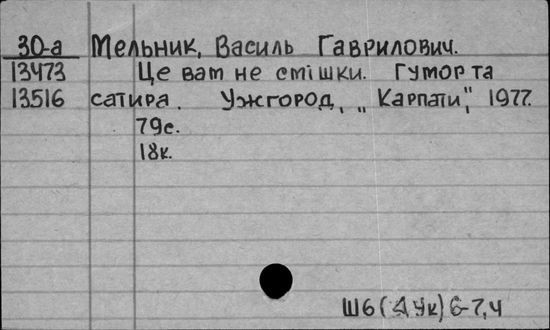 30-а Мельник, Василь Гаврилович.
13473 Це вам не смішки. Гумор та
13516 сатира. Ужгород, „Карпати", 1977.
79с.
18к.
Ш6(4Ук)6-7,4